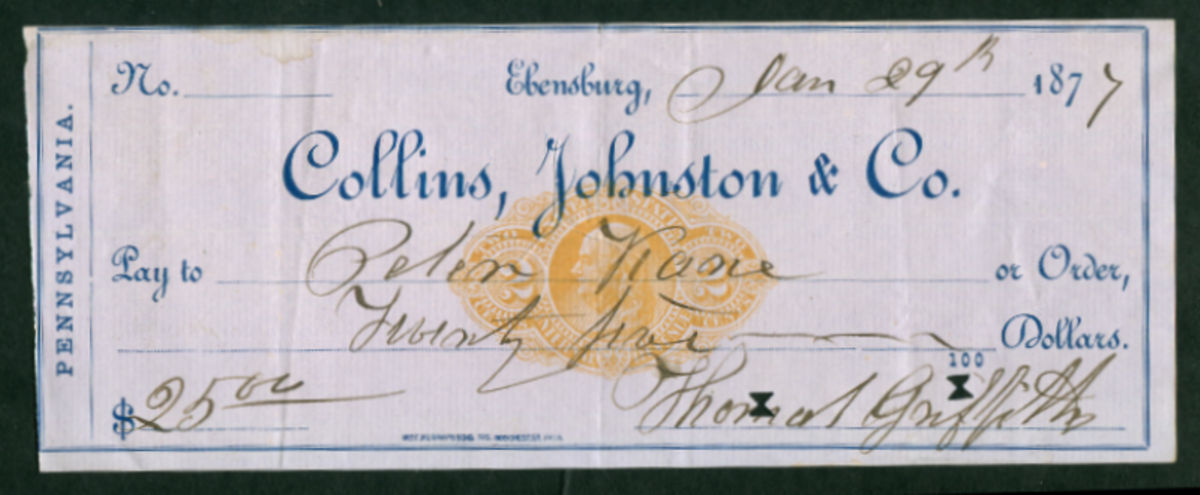 No.
Ebensburg, Jan 29th 1877
Collins, Johnston & Co.
PENNSYLVANIA.
Pay to Peter Kane or Order,
Twenty five Dollars.
100
$25 00
Thomas Griffith